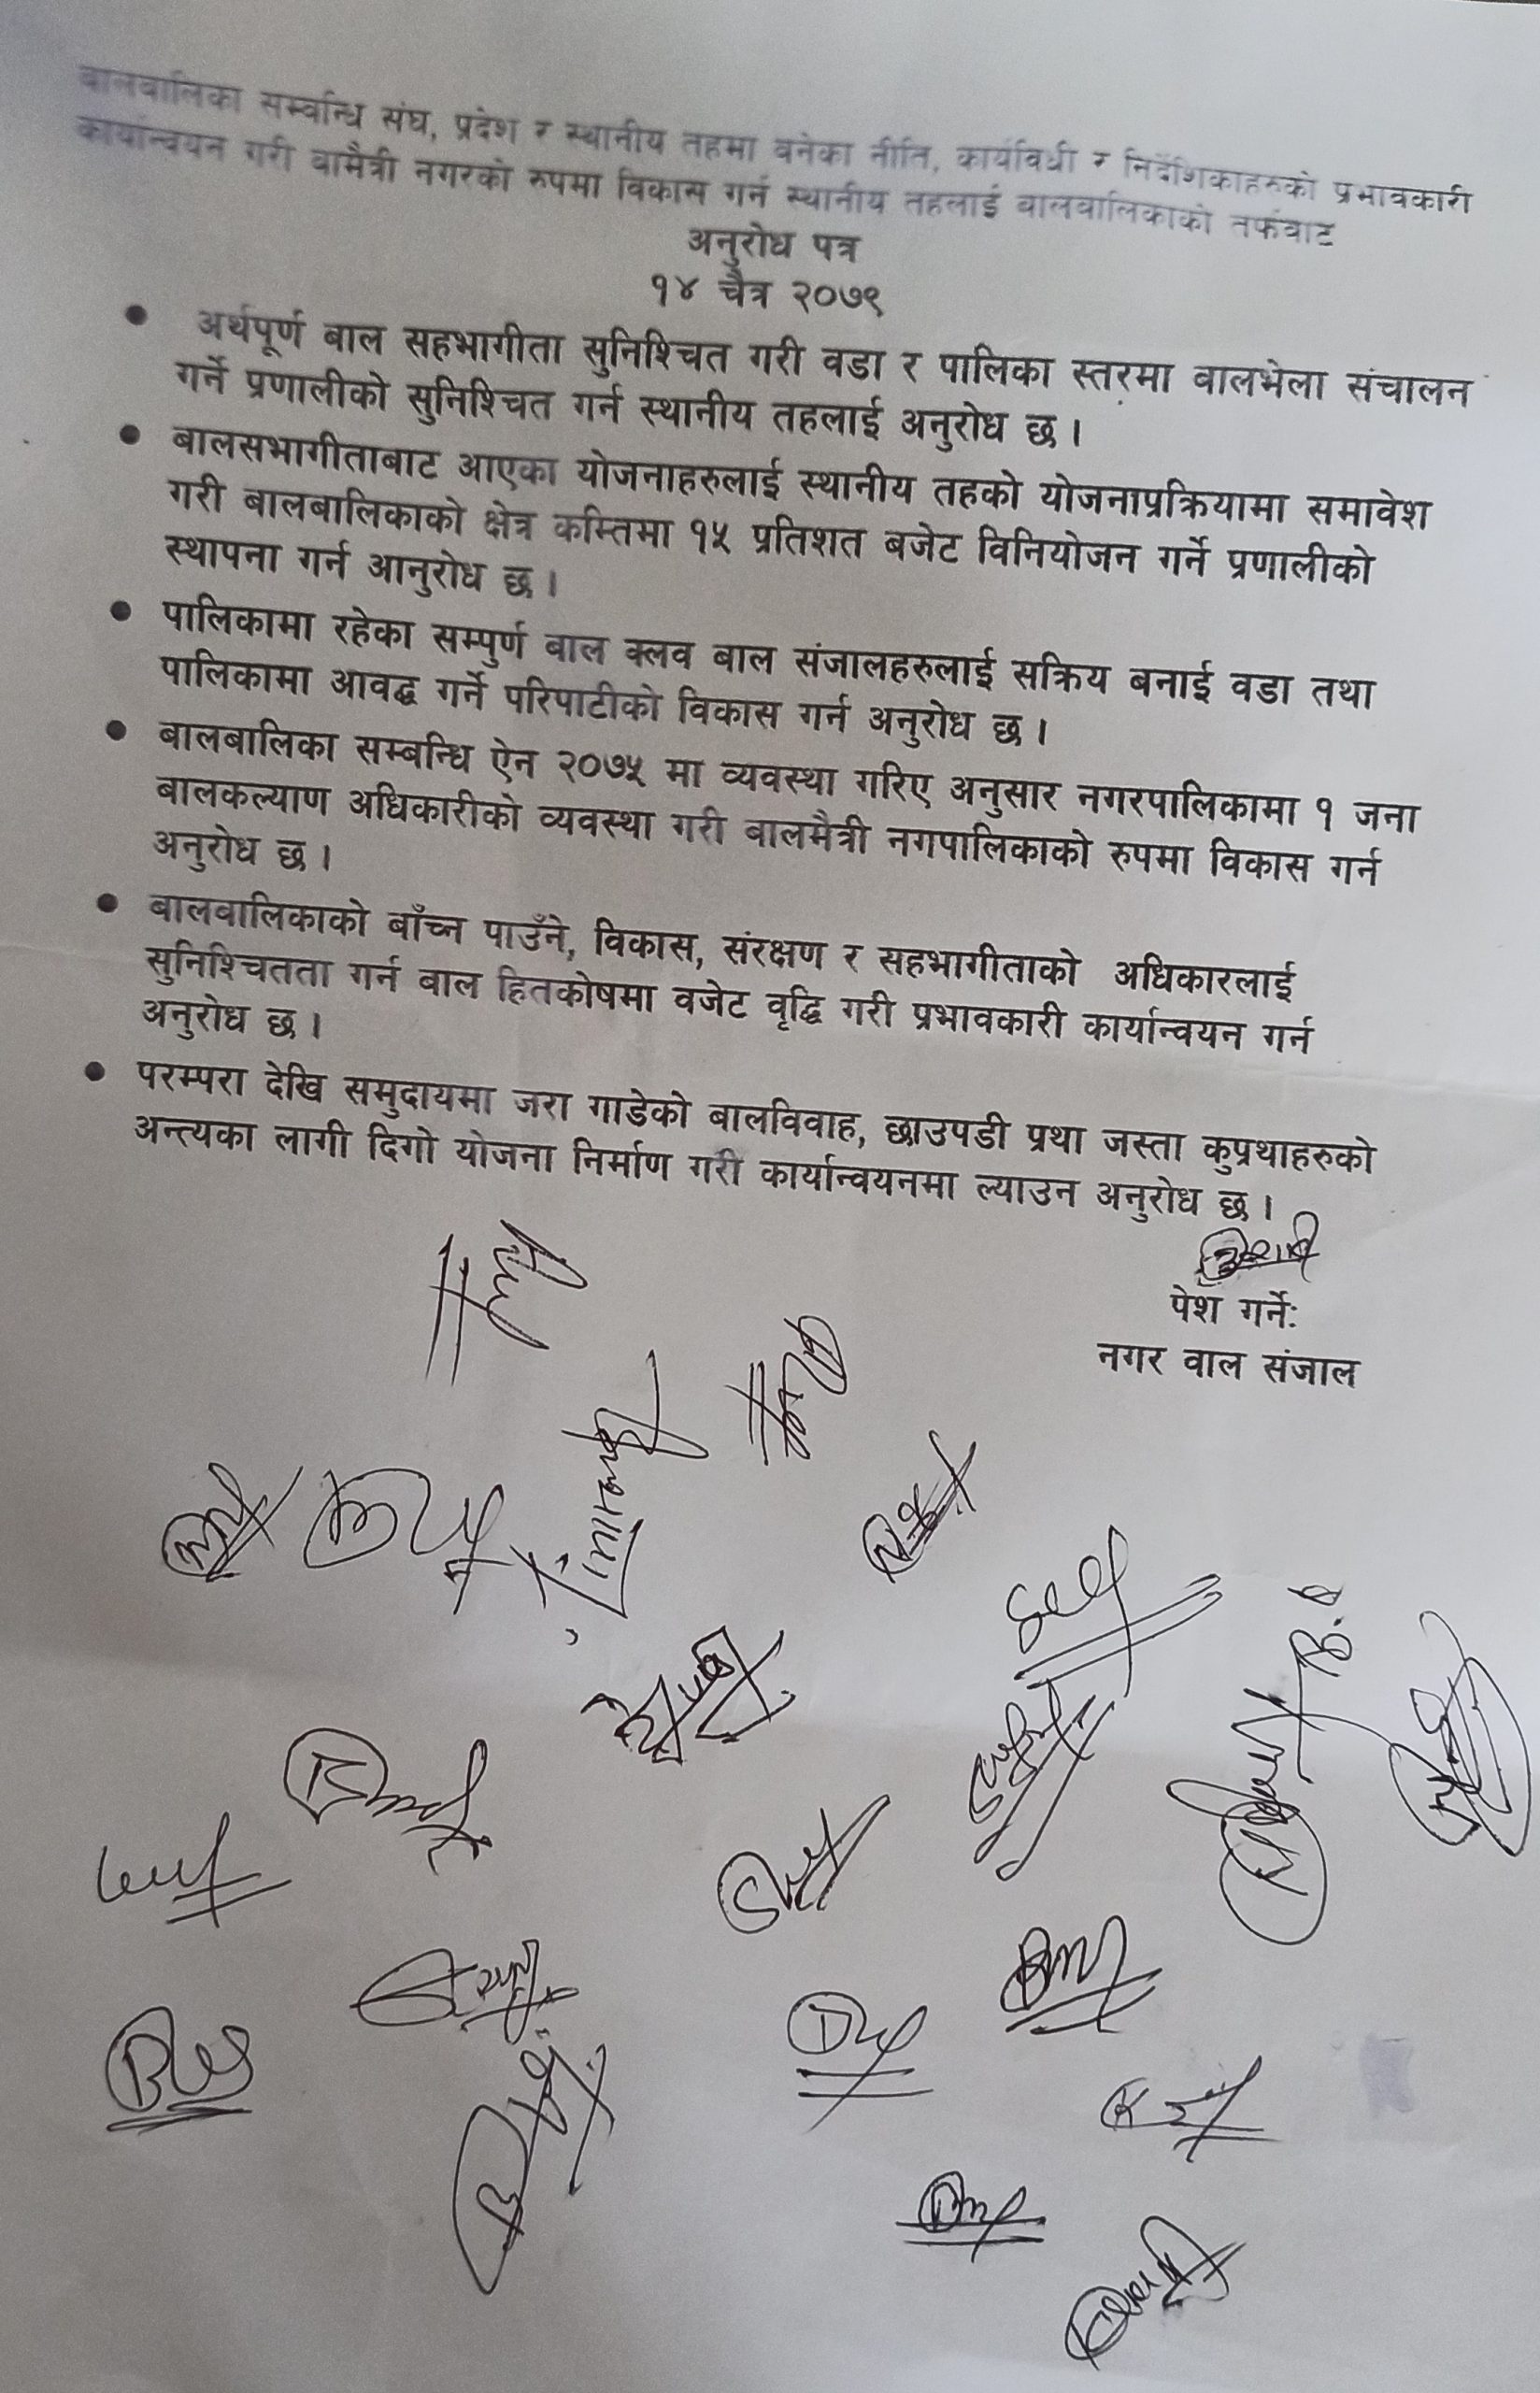 बालबालिका सम्वन्धि संघ, प्रदेश र स्थानीय तहमा बनेका नीति, कार्यविधी र निर्देशिकाहरुको प्रभावकारी
कार्यान्वयन गरी बामैत्री नगरको रुपमा विकास गर्न स्थानीय तहलाई बालबालिकाको तर्फवाट
अनुरोध पत्र
१४ चैत्र २०७९
• अर्थपूर्ण बाल सहभागीता सुनिश्चित गरी वडा र पालिका स्तरमा बालभेला संचालन
गर्ने प्रणालीको सुनिश्चित गर्न स्थानीय तहलाई अनुरोध छ ।
• बालसभागीताबाट आएका योजनाहरुलाई स्थानीय तहको योजनाप्रक्रियामा समावेश
गरी बालबालिकाको क्षेत्र कम्तिमा १५ प्रतिशत बजेट विनियोजन गर्ने प्रणालीको
स्थापना गर्न आनुरोध छ ।
• पालिकामा रहेका सम्पुर्ण बाल क्लव बाल संजालहरुलाई सक्रिय बनाई वडा तथा
पालिकामा आवद्ध गर्ने परिपाटीको विकास गर्न अनुरोध छ ।
• बालबालिका सम्बन्धि ऐन २०७५ मा व्यवस्था गरिए अनुसार नगरपालिकामा १ जना
बालकल्याण अधिकारीको व्यवस्था गरी बालमैत्री नगपालिकाको रुपमा विकास गर्न
अनुरोध छ ।
• बालबालिकाको बाँच्न पाउँने, विकास, संरक्षण र सहभागीताको अधिकारलाई
सुनिश्चितता गर्न बाल हितकोषमा वजेट वृद्धि गरी प्रभावकारी कार्यान्वयन गर्न
अनुरोध छ ।
• परम्परा देखि समुदायमा जरा गाडेको बालविवाह, छाउपडी प्रथा जस्ता कुप्रथाहरुको
अन्त्यका लागी दिगो योजना निर्माण गरी कार्यान्वयनमा ल्याउन अनुरोध छ ।
पेश गर्ने:
नगर वाल संजाल